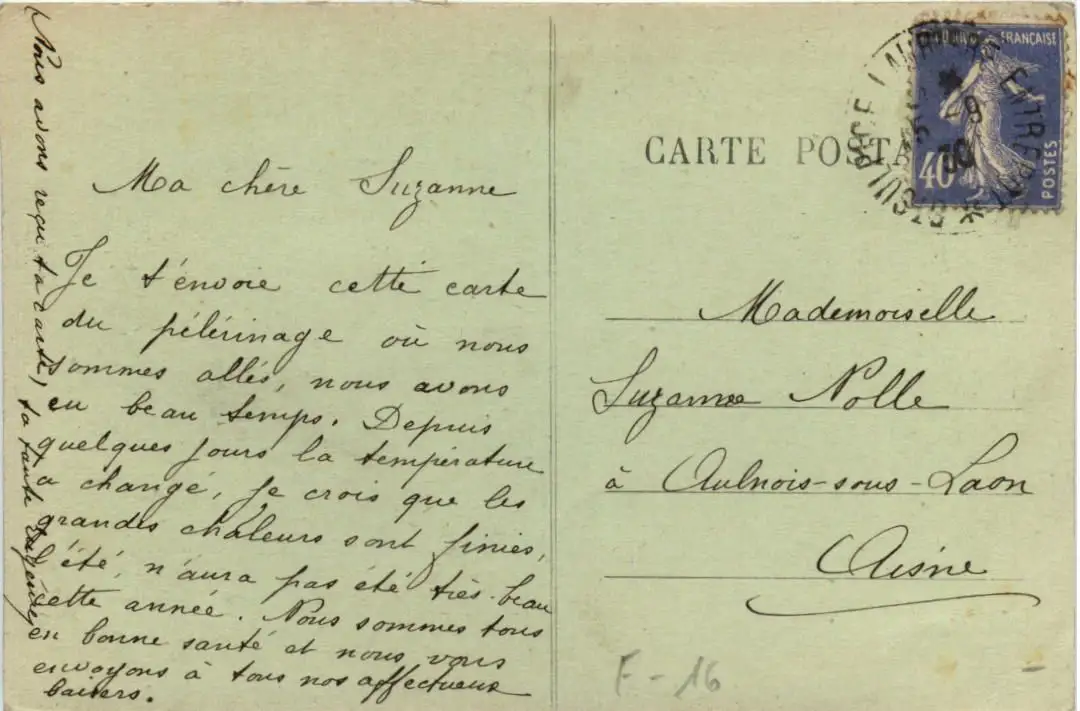 Ma chère Suzanne
Je t'envoie cette carte
du pélérinage où nous
sommes allés, nous avons
eu beau temps. Depuis
quelques jours la température
a changé, je crois que les
grandes chaleurs sont finies,
l'été, n'aura pas été très beau
cette année. Nous sommes tous
en bonne santé et nous vous
envoyons à tous nos affectueux
baisers.
Nous avons reçu ta carte, ta tante
CARTE POSTA
FRANÇAISE
POSTES
40
ST SULPICE LAURIERE ENTREPOT
-9
30
Mademoiselle
Suzanne Nolle
à Aulnois-sous-Laon
Aisne
F-16